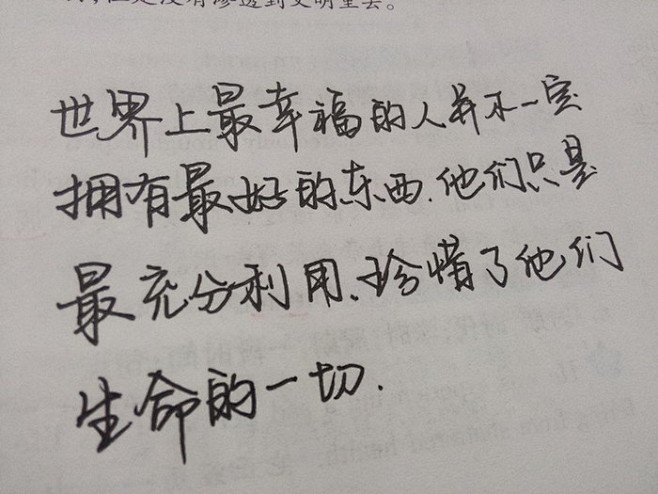 没有渗透到文明里去。
世界上最幸福的人并不一定
拥有最好的东西.他们只是
最充分利用、珍惜了他们
生命的一切.